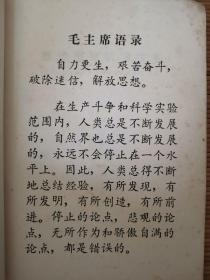 毛主席语录
自力更生，艰苦奋斗，
破除迷信，解放思想。
在生产斗争和科学实验
范围内，人类总是不断发展
的，自然界也总是不断发展
的，永远不会停止在一个水
平上。因此，人类总得不断
地总结经验，有所发现，有
所发明，有所创造，有所前
进。停止的论点，悲观的论
点，无所作为和骄傲自满的
论点，都是错误的。